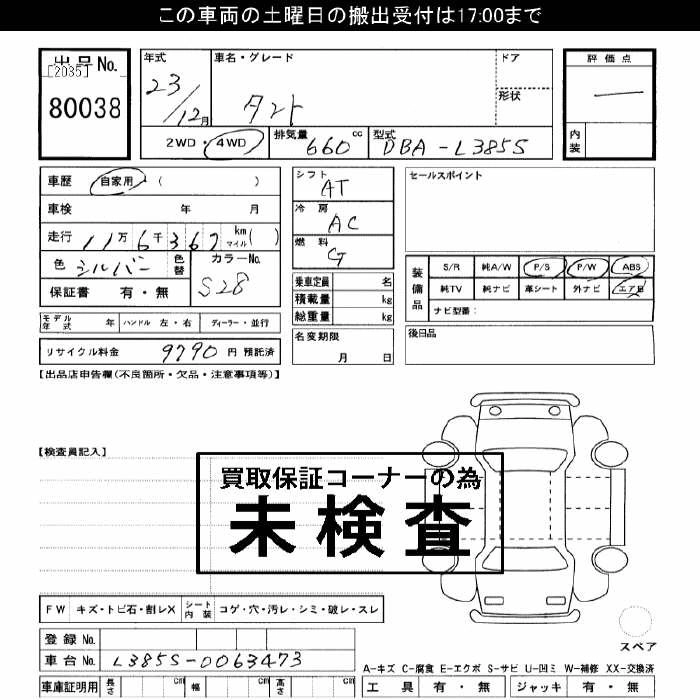 この車両の土曜日の搬出受付は17:00まで
出品No.
[2035]
80038
年式
23/12月
車名・グレード
タント
ドア
形状
評価点
—
内装
2WD・4WD
排気量 660 cc
型式 DBA-L385S
車歴 自家用・( )
車検 年 月
走行 11万6千367 km マイル ( )
色 シルバー 色替
カラーNo.
S28
保証書 有・無
シフト
AT
冷房
AC
燃料
G
乗車定員 名
積載量 kg
総重量 kg
セールスポイント
装備品
S/R 純A/W P/S P/W ABS
純TV 純ナビ 革シート 外ナビ エアB
ナビ型番:
モデル年式 年 ハンドル 左・右 ディーラー・並行
名変期限
月 日
後日品
リサイクル料金 9790 円 預託済
【出品店申告欄(不良箇所・欠品・注意事項等)】
【検査員記入】
買取保証コーナーの為
未検査
FW キズ・トビ石・割レX シート内装 コゲ・穴・汚レ・シミ・破レ・スレ
スペア
登録No.
車台No. L385S-0063473
A-キズ C-腐食 E-エクボ S-サビ U-凹ミ W-補修 XX-交換済
車庫証明用 長さ cm 幅 cm 高さ cm
工具 有・無 ジャッキ 有・無